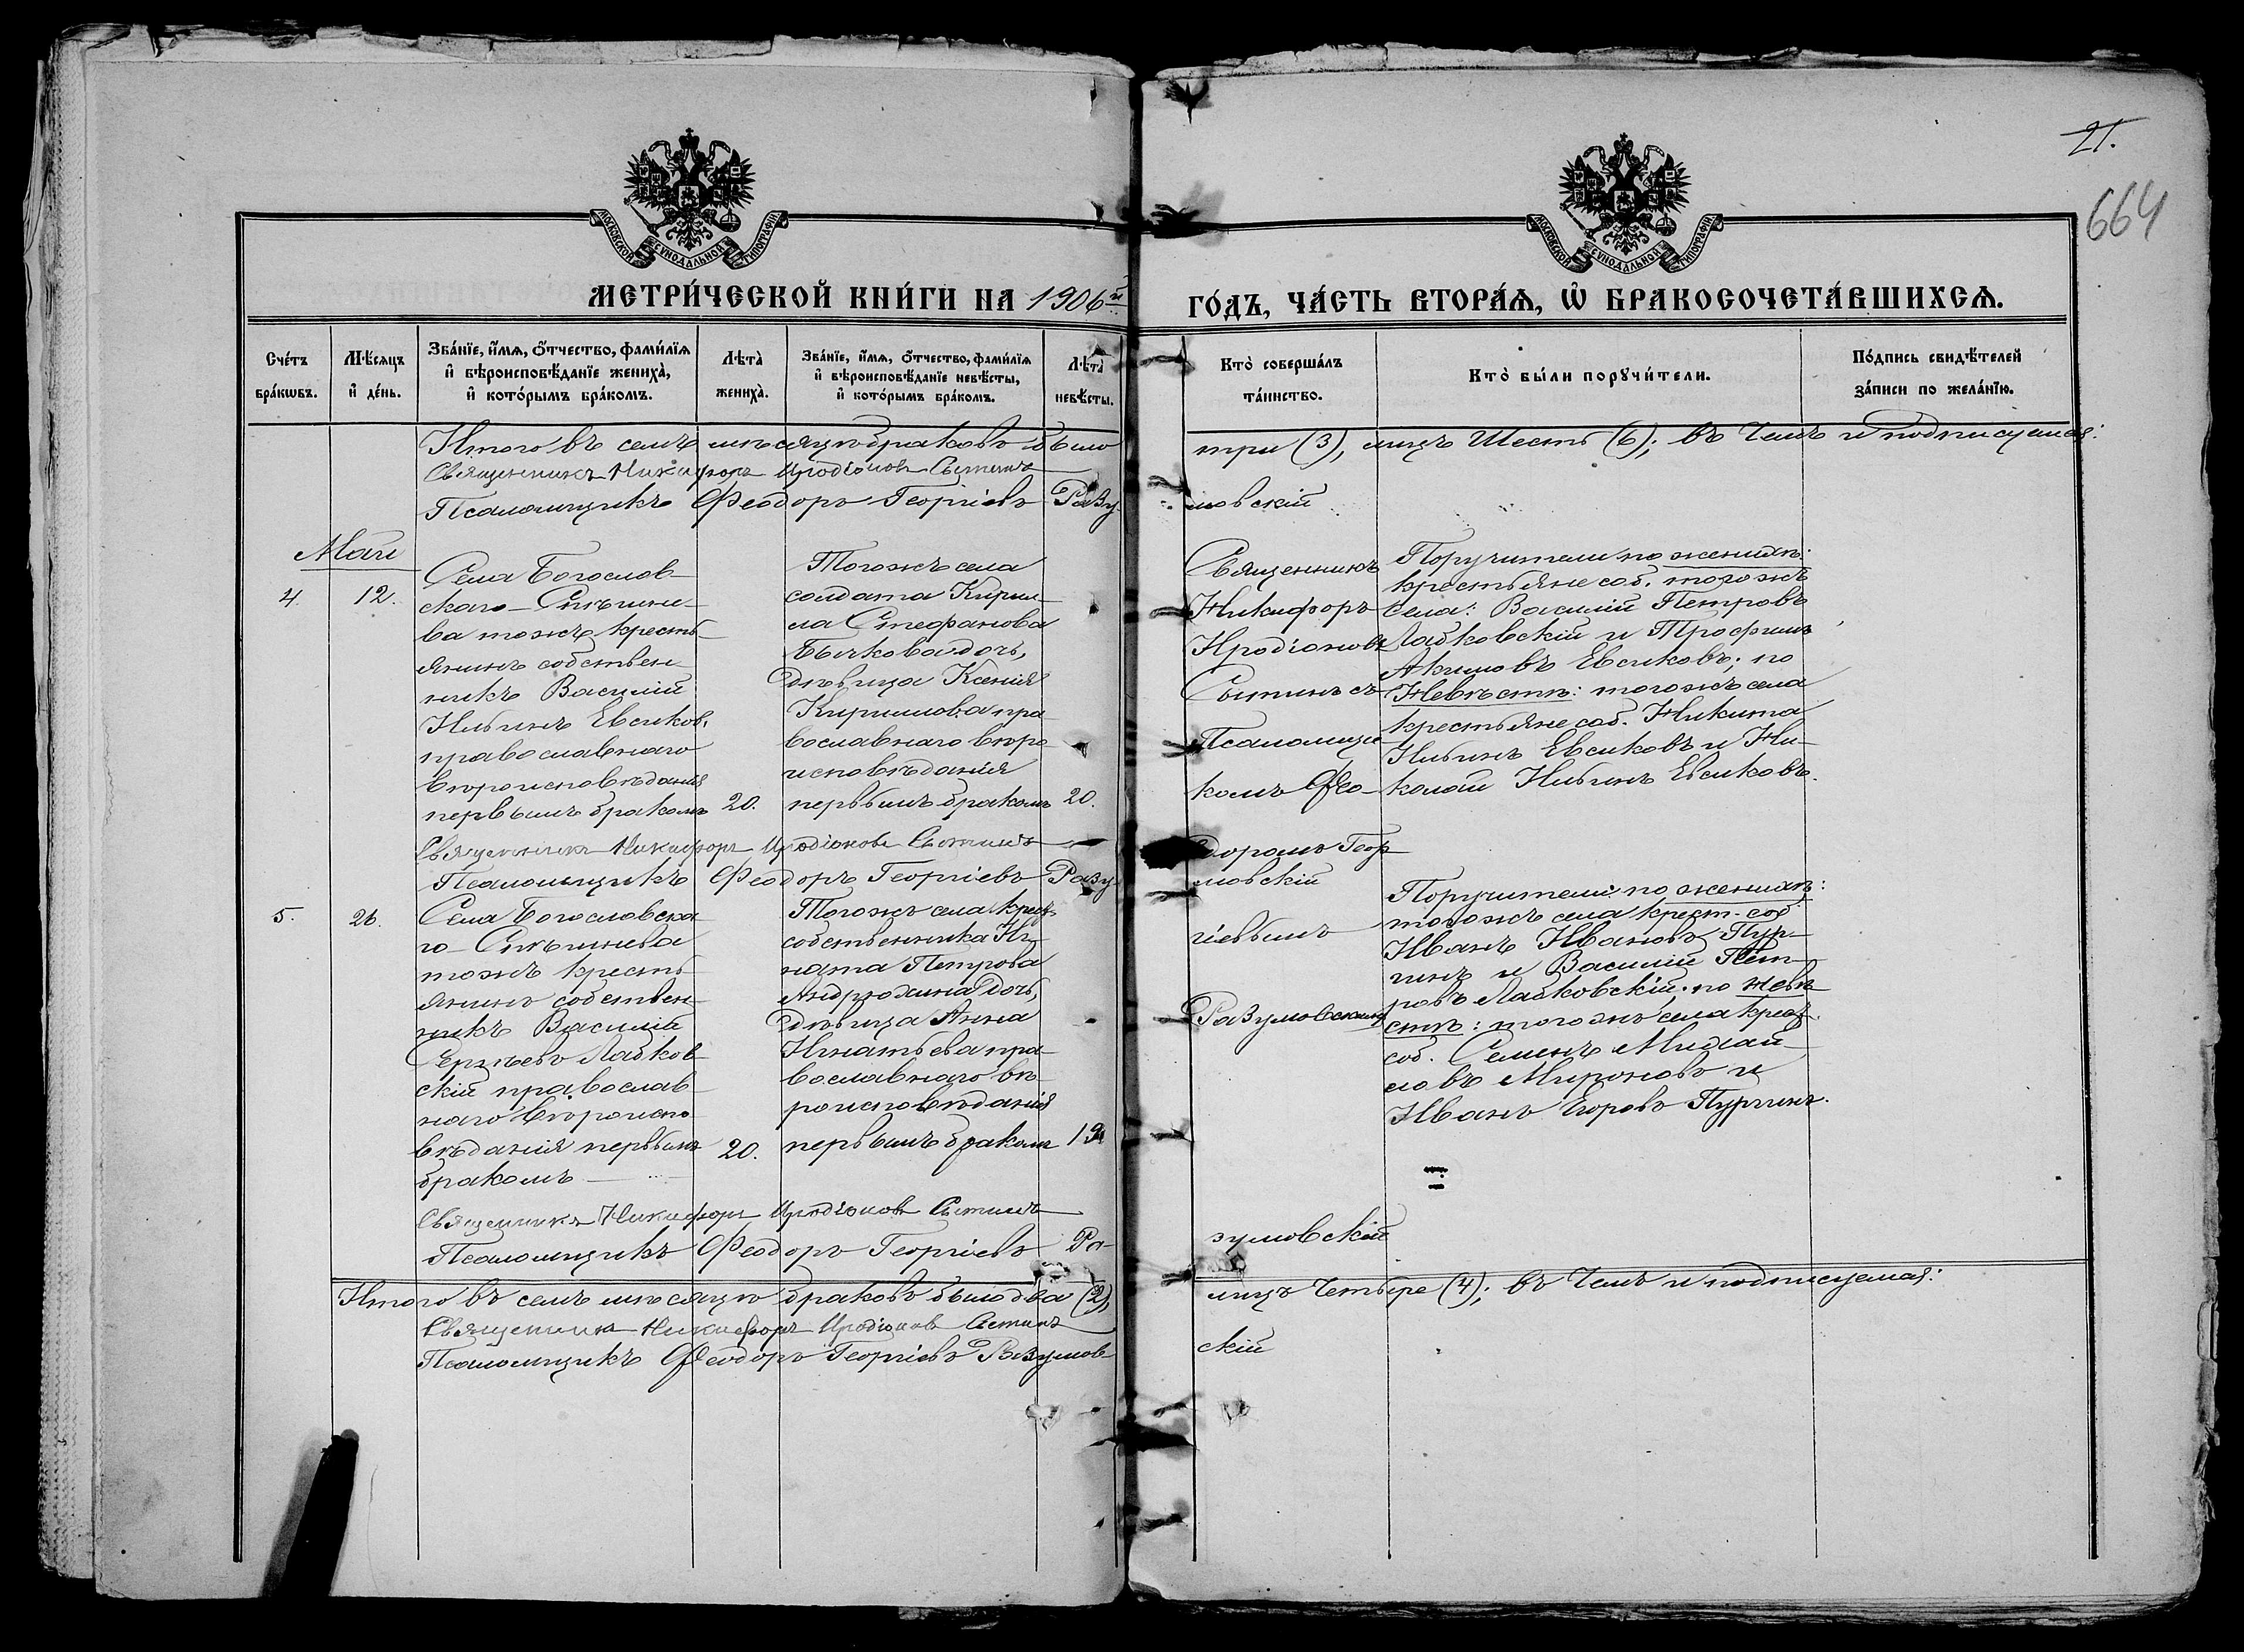 21.
664
МОСКОВСКОЙ СѴНОДАЛЬНОЙ ТИПОГРАФІИ
МОСКОВСКОЙ СѴНОДАЛЬНОЙ ТИПОГРАФІИ
МЕТРИ́ЧЕСКОЙ КНИ́ГИ НА 1906й
ГО́ДЪ, ЧА́СТЬ ВТОРА́Ѧ, Ѡ БРАКОСОЧЕТА́ВШИХСѦ.
Сче́тъ бра́кѡвъ.
Мѣ́сяцъ и҆ де́нь.
Зва́нїе, и҆́мѧ, ѻ҆́тчество, фами́лїѧ и҆ вѣроисповѣ́данїе жениха̀, и҆ кото́рымъ бра́комъ.
Лѣта̀ жениха̀.
Зва́нїе, и҆́мѧ, ѻ҆́тчество, фами́лїѧ и҆ вѣроисповѣ́данїе невѣ́сты, и҆ кото́рымъ бра́комъ.
Лѣта̀ невѣ́сты.
Кто̀ соверша́лъ та́инство.
Кто̀ бы́ли порꙋчи́тели.
По́дпись свидѣ́телей за́писи по жела́нїю.
Итого въ семъ мѣсяцѣ браковъ было
три (3), лицъ Шесть (6); въ Чемъ и подписуемся:
Священникъ Никифоръ Иродіоновъ Сытинъ
Псаломщикъ Феодоръ Георгіевъ Разу
мовскій
Маи
4.
12.
Села Богослов-
скаго-Спѣшне-
ва тожъ кресть-
янинъ собствен-
никъ Василій
Ильинъ Евсиков,
православнаго
вѣроисповѣданія
первымъ бракомъ
20.
Тогожъ села
солдата Кирил-
ла Стефанова
Бычкова дочь,
дѣвица Ксенія
Кириллова пра-
вославнаго вѣро
исповѣданія
первымъ бракомъ
20.
Священникъ
Никифоръ
Иродіоновъ
Сытинъ съ
Псаломщи
комъ Фео-
доромъ Геор
гіевымъ
Разумовскимъ
Поручители по женихѣ:
крестьяне соб. тогожъ
села: Василій Петровъ
Лабковскій и Трофимъ
Акимовъ Евсиковъ; по
Невѣстѣ: тогожъ села
крестьяне соб. Никита
Ильинъ Евсиковъ и Ни-
колай Ильинъ Евсиковъ.
Священникъ Никифоръ Иродіоновъ Сытинъ
Псаломщикъ Феодоръ Георгіевъ Разу
мовскій
5.
26.
Села Богословска-
го-Спѣшнева
тожъ кресть-
янинъ собствен-
никъ Василій
Сергѣевъ Лабков-
скій православ-
наго вѣроиспо-
вѣданія первымъ
бракомъ
20.
Тогожъ села крест.
собственника Иг-
ната Петрова
Андрюхина дочь,
дѣвица Анна
Игнатьева пра-
вославнаго вѣ-
роисповѣданія
первымъ бракомъ
19
Поручители: по женихѣ:
тогожъ села крест. соб.
Иванъ Ивановъ Пур-
гинъ и Василій Пет-
ровъ Лабковскій; по невѣ
стѣ: тогожъ села крест.
соб. Семенъ Михай-
ловъ Мироновъ и
Иванъ Егоровъ Пургинъ.
Священникъ Никифоръ Иродіоновъ Сытинъ
Псаломщикъ Феодоръ Георгіевъ Ра-
зумовскій
Итого въ семъ мѣсяцѣ браковъ было два (2),
лицъ Четыре (4); въ Чемъ и подписуемся:
Священникъ Никифоръ Иродіоновъ Сытинъ
Псаломщикъ Феодоръ Георгіевъ Разумов-
скій